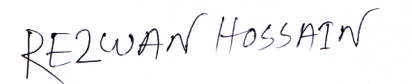 REZWAN HOSSAIN